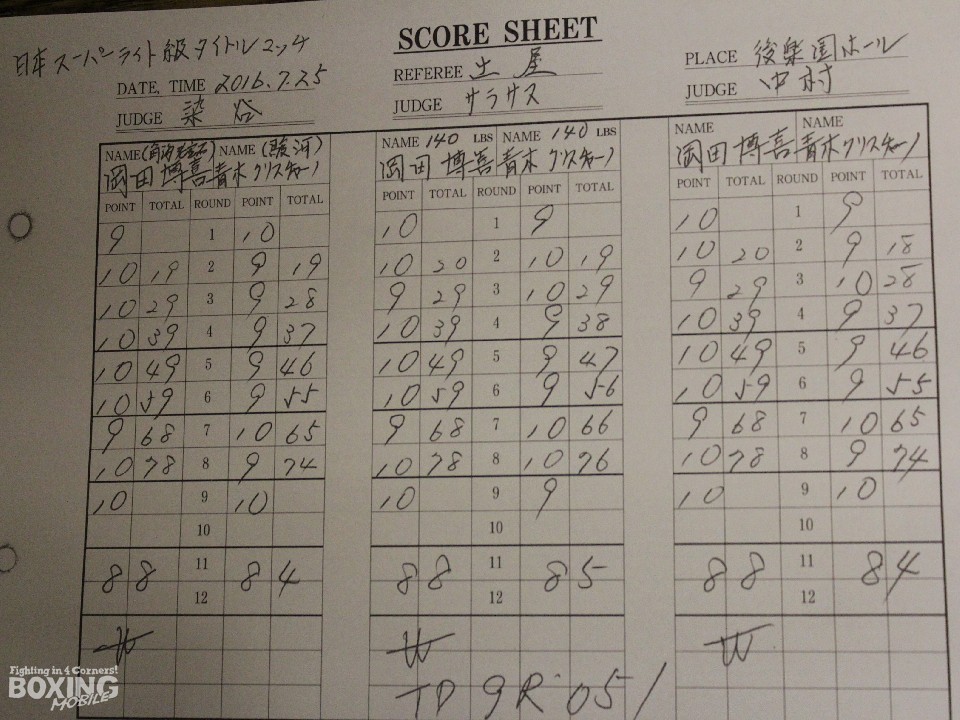 SCORE SHEET
日本スーパーライト級タイトルマッチ
DATE, TIME 2016.7.25
REFEREE 土屋
PLACE 後楽園ホール
JUDGE 染谷
JUDGE サラサス
JUDGE 中村
NAME (角海老宝石) NAME (駿河)
岡田博喜 青木クリスチャーノ
POINT TOTAL ROUND POINT TOTAL
9 1 10
10 19 2 9 19
10 29 3 9 28
10 39 4 9 37
10 49 5 9 46
10 59 6 9 55
9 68 7 10 65
10 78 8 9 74
10 9 10
10
88 11 84
12
W
NAME 140 LBS NAME 140 LBS
岡田博喜 青木クリスチャーノ
POINT TOTAL ROUND POINT TOTAL
10 1 9
10 20 2 10 19
9 29 3 10 29
10 39 4 9 38
10 49 5 9 47
10 59 6 9 56
9 68 7 10 66
10 78 8 10 76
10 9 9
10
88 11 85
12
W
TD 9R 051
NAME NAME
岡田博喜 青木クリスチャーノ
POINT TOTAL ROUND POINT TOTAL
10 1 9
10 20 2 9 18
9 29 3 10 28
10 39 4 9 37
10 49 5 9 46
10 59 6 9 55
9 68 7 10 65
10 78 8 9 74
10 9 10
10
88 11 84
12
W
Fighting in 4 Corners!
BOXING
MOBILE